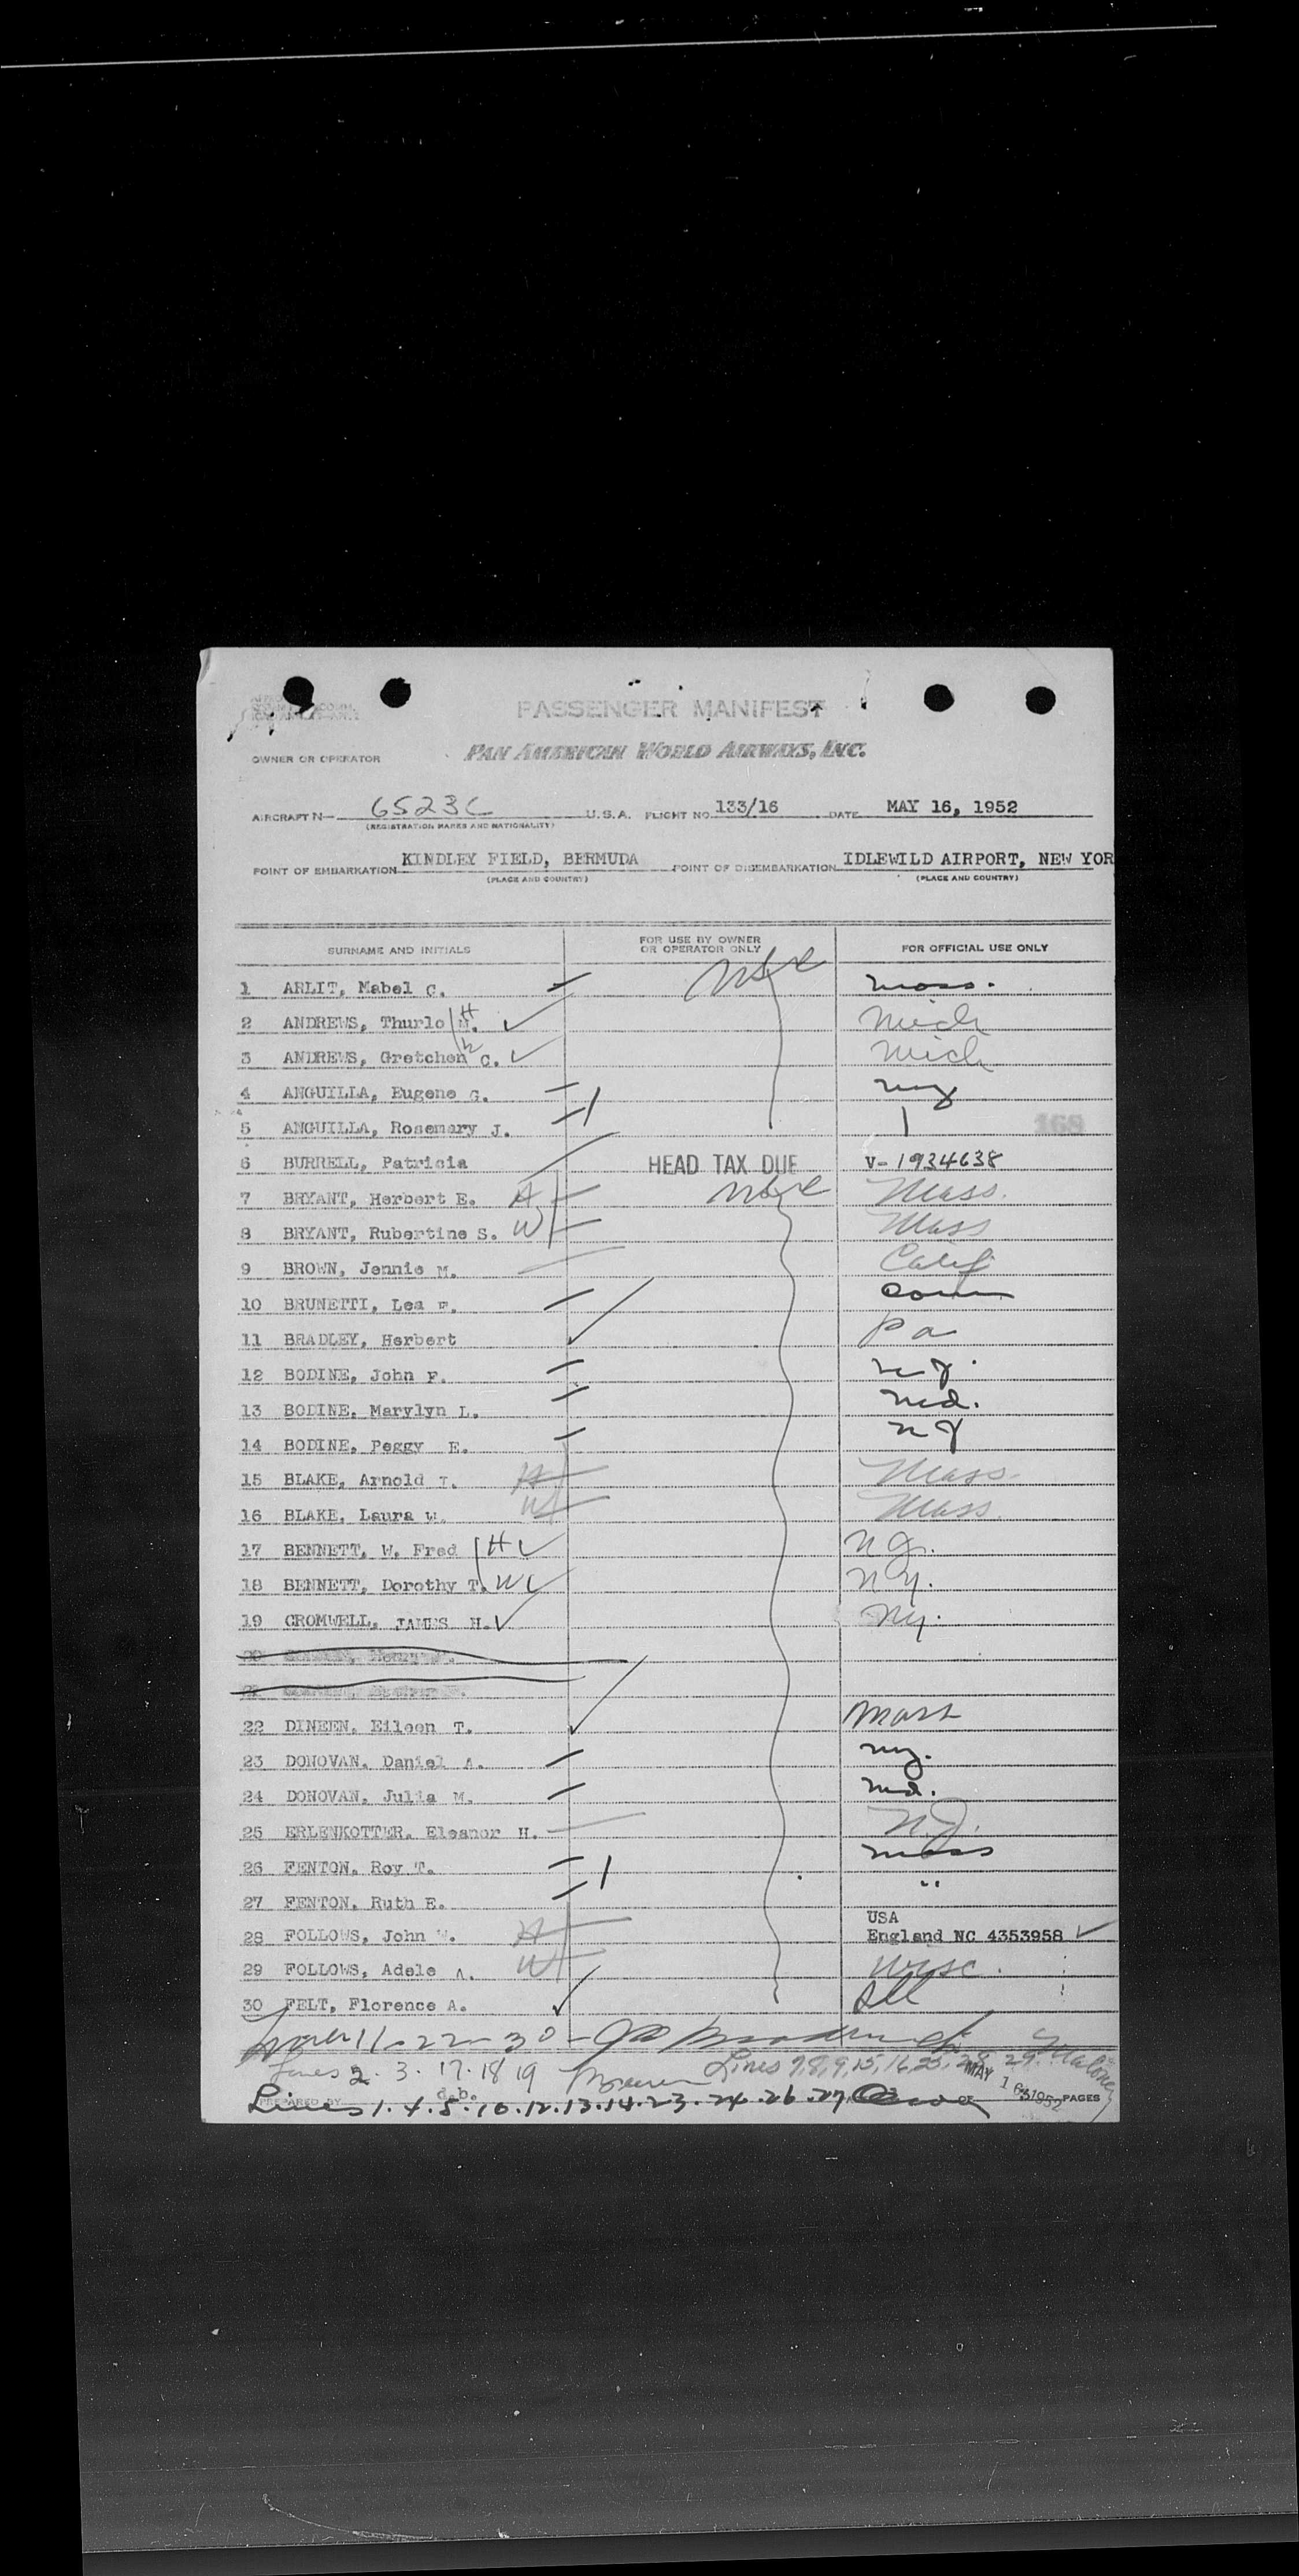 PASSENGER MANIFEST
PAN AMERICAN WORLD AIRWAYS, INC.
OWNER OR OPERATOR
AIRCRAFT N- 6523C U.S.A. FLIGHT NO. 133/16 DATE MAY 16, 1952
(REGISTRATION MARKS AND NATIONALITY)
POINT OF EMBARKATION KINDLEY FIELD, BERMUDA POINT OF DISEMBARKATION IDLEWILD AIRPORT, NEW YOR
(PLACE AND COUNTRY) (PLACE AND COUNTRY)
SURNAME AND INITIALS FOR USE BY OWNER OR OPERATOR ONLY FOR OFFICIAL USE ONLY
1 ARLIT, Mabel C. Mass.
2 ANDREWS, Thurlo M. H Mich
3 ANDREWS, Gretchen C. W Mich
4 ANGUILLA, Eugene G. NY
5 ANGUILLA, Rosemary J. 168
6 BURRELL, Patricia HEAD TAX DUE V-1934638
7 BRYANT, Herbert E. H Mass.
8 BRYANT, Rubertine S. W Mass
9 BROWN, Jennie M. Calif
10 BRUNETTI, Lea F. Conn
11 BRADLEY, Herbert Pa
12 BODINE, John F. NJ.
13 BODINE, Marylyn L. Md.
14 BODINE, Peggy E. NJ
15 BLAKE, Arnold I. H Mass.
16 BLAKE, Laura W. W Mass.
17 BENNETT, W. Fred H N.Y.
18 BENNETT, Dorothy T. W N.Y.
19 CROMWELL, JAMES H. NY.
20
21
22 DINEEN, Eileen T. Mass
23 DONOVAN, Daniel A. NY.
24 DONOVAN, Julia M. Md.
25 ERLENKOTTER, Eleanor H. N.J.
26 FENTON, Roy T. Mass
27 FENTON, Ruth E. "
USA
28 FOLLOWS, John W. H England NC 4353958
29 FOLLOWS, Adele A. W Wisc.
30 FELT, Florence A. Ill
Lines 11-22-30-
Lines 2. 3. 17. 18 19 Lines 7,8,9,15,16,25,28,29. Maloney
MAY 16 1952
PREPARED BY d.b. OF PAGES
Lines 1.4.5.10.12.13.14.23.24.26.27